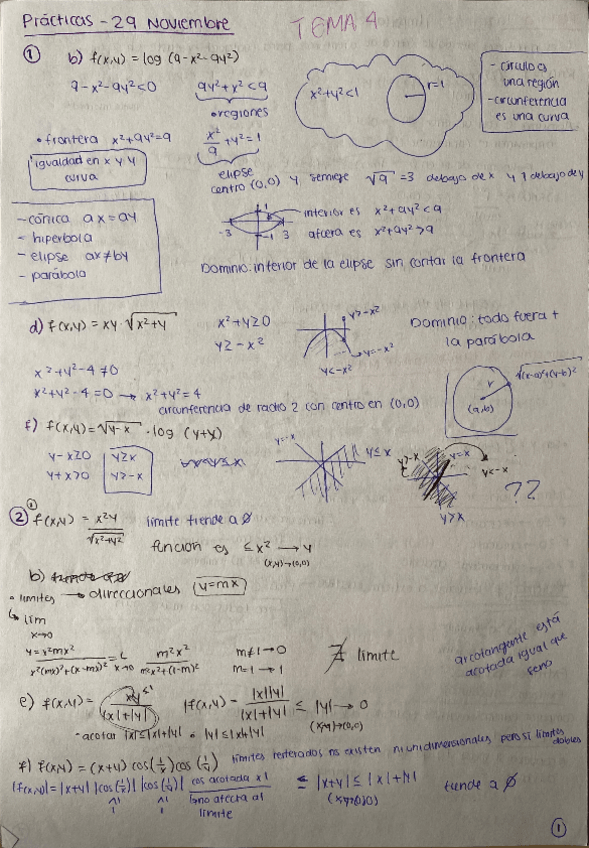 Prácticas - 29 Noviembre
TEMA 4
① b) f(x,y) = log (9-x²-9y²)
9-x²-9y²<0
9y²+x²<9
• regiones
x²+y²<1
r=1
- círculo es una región
- circunferencia es una curva
• frontera x²+9y²=9
x²/9 + y² = 1
igualdad en x y y
curva
elipse
centro (0,0) y semieje √9 = 3 debajo de x y 1 debajo de y
- cónica ax = ay
- hiperbola
- elipse ax≠by
- parábola
interior es x²+9y²<9
afuera es x²+9y²>9
-3
1
-1
3
Dominio: interior de la elipse sin contar la frontera
d) f(x,y) = xy·√x²+y
x²+y≥0
y≥-x²
y>-x²
y=-x²
y<-x²
Dominio: todo fuera +
la parábola
x²+y²-4≠0
x²+y²-4=0 → x²+y²=4
circunferencia de radio 2 con centro en (0,0)
√(x-a)²+(y-b)²
r
(a,b)
f) f(x,y) = √y-x · log (y+x)
y-x≥0
y+x>0
y≥x
y>-x
y=-x
y≤x
y>-x
y=x
y<-x
y>x
??
② f(x,y) = x²y/√x²+y²
límite tiende a ∅
función es ≤x² → y
(x,y)→(0,0)
b)
• límites → direccionales y=mx
↳ lim
x→0
m²x²/m²x²+(1-m)²
m≠1 → 0
m=1 → 1
∄ límite
arcotangente está
acotada igual que
seno
e) f(x,y) = xy/|x|+|y|
|f(x,y) - |x||y|/|x|+|y| ≤ |y| → 0
(x,y)→(0,0)
- acotar |x|≤|x|+|y| o |y|≤|x|+|y|
f) f(x,y) = (x+y) cos(1/x) cos(1/y)
límites reiterados no existen ni unidimensionales pero sí límites dobles
|f(x,y)| = |x+y| |cos(1/x)| |cos(1/y)|
cos acotada x 1
no afecta al
límite
≤ |x+y| ≤ |x|+|y|
(x,y)→(0,0)
tiende a ∅
1